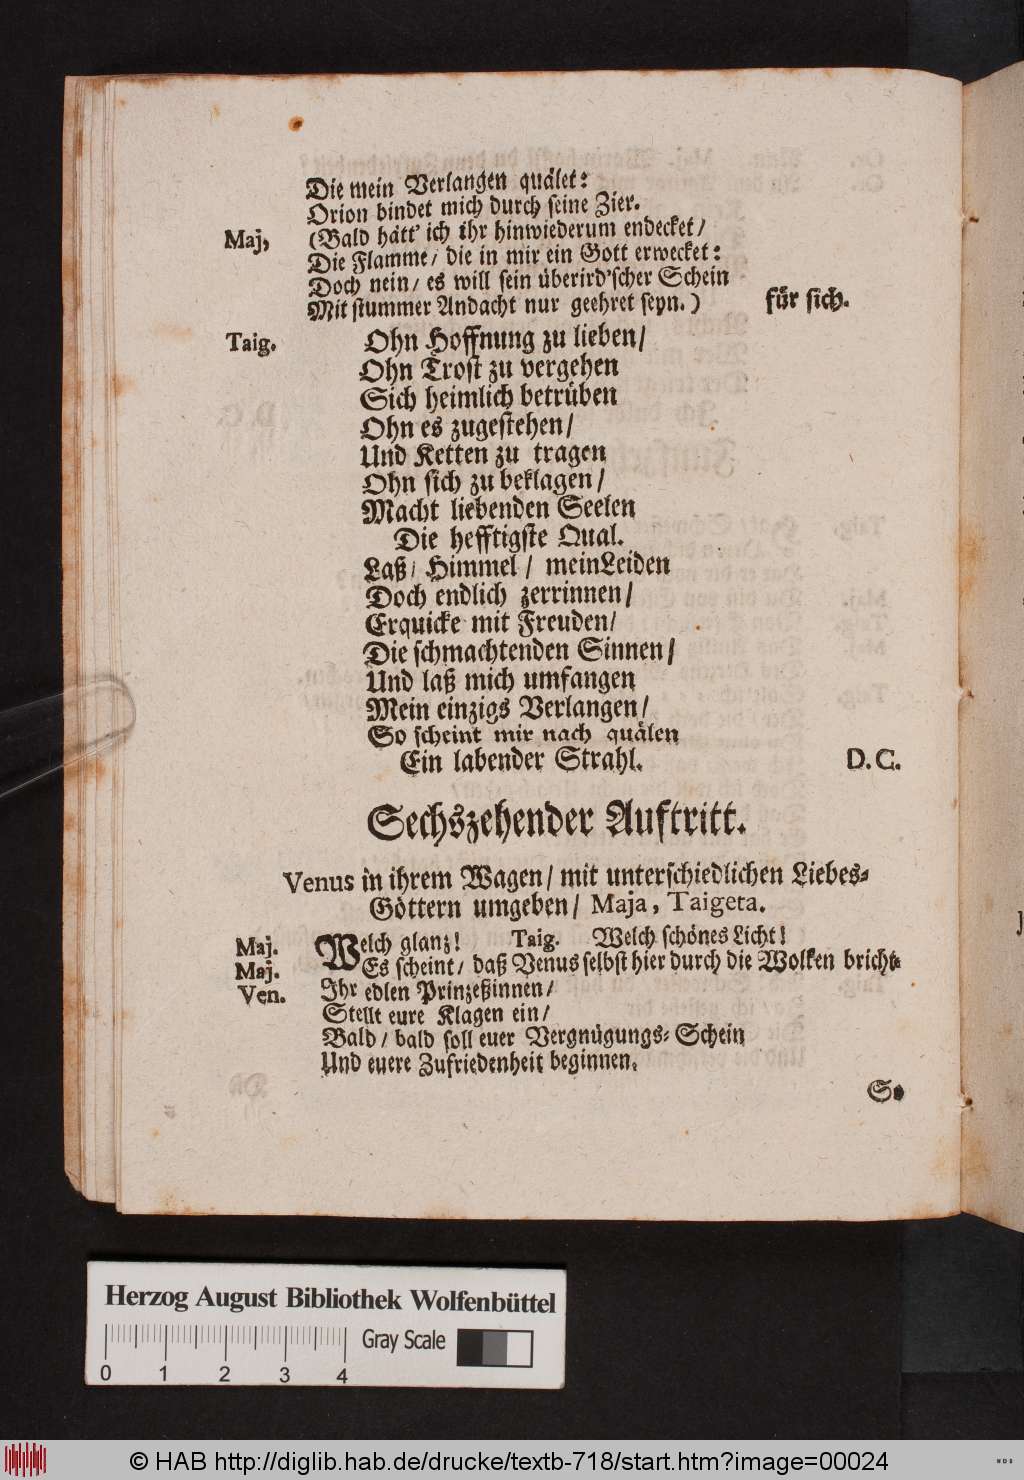 Die mein Verlangen quälet:
Orion bindet mich durch seine Zier.
Maj, (Bald hätt' ich ihr hinwiederum endecket/
Die Flamme/ die in mir ein Gott erwecket:
Doch nein/ es will sein überird'scher Schein
Mit stummer Andacht nur geehret seyn.) für sich.
Taig. Ohn Hoffnung zu lieben/
Ohn Trost zu vergehen
Sich heimlich betrüben
Ohn es zugestehen/
Und Ketten zu tragen
Ohn sich zu beklagen/
Macht liebenden Seelen
Die hefftigste Qual.
Laß/ Himmel/ meinLeiden
Doch endlich zerrinnen/
Erquicke mit Freuden/
Die schmachtenden Sinnen/
Und laß mich umfangen
Mein einzigs Verlangen/
So scheint mir nach quälen
Ein labender Strahl. D.C.
Sechszehender Auftritt.
Venus in ihrem Wagen/ mit unterschiedlichen Liebes=
Göttern umgeben/ Maja, Taigeta.
Maj. Welch glanz! Taig. Welch schönes Licht!
Maj. Es scheint/ daß Venus selbst hier durch die Wolken bricht.
Ven. Ihr edlen Prinzeßinnen/
Stellt eure Klagen ein/
Bald/ bald soll euer Vergnügungs=Schein
Und euere Zufriedenheit beginnen.
So
Herzog August Bibliothek Wolfenbüttel
Gray Scale
0 1 2 3 4
© HAB http://diglib.hab.de/drucke/textb-718/start.htm?image=00024